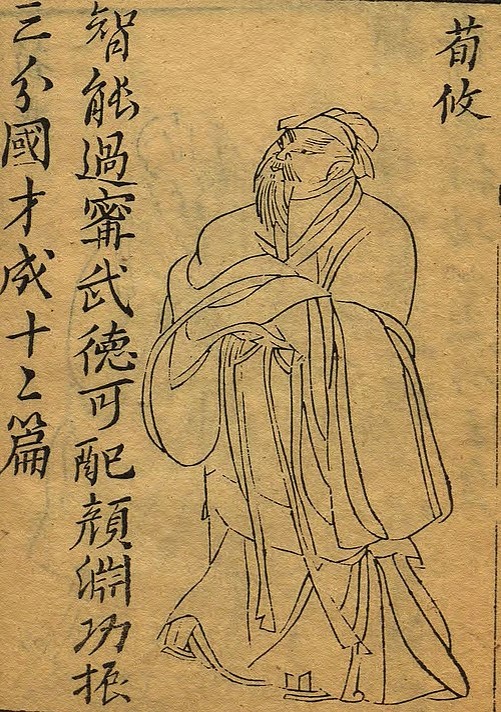 荀攸
智能過寗武德可配顔淵功振
三分國才成十二篇